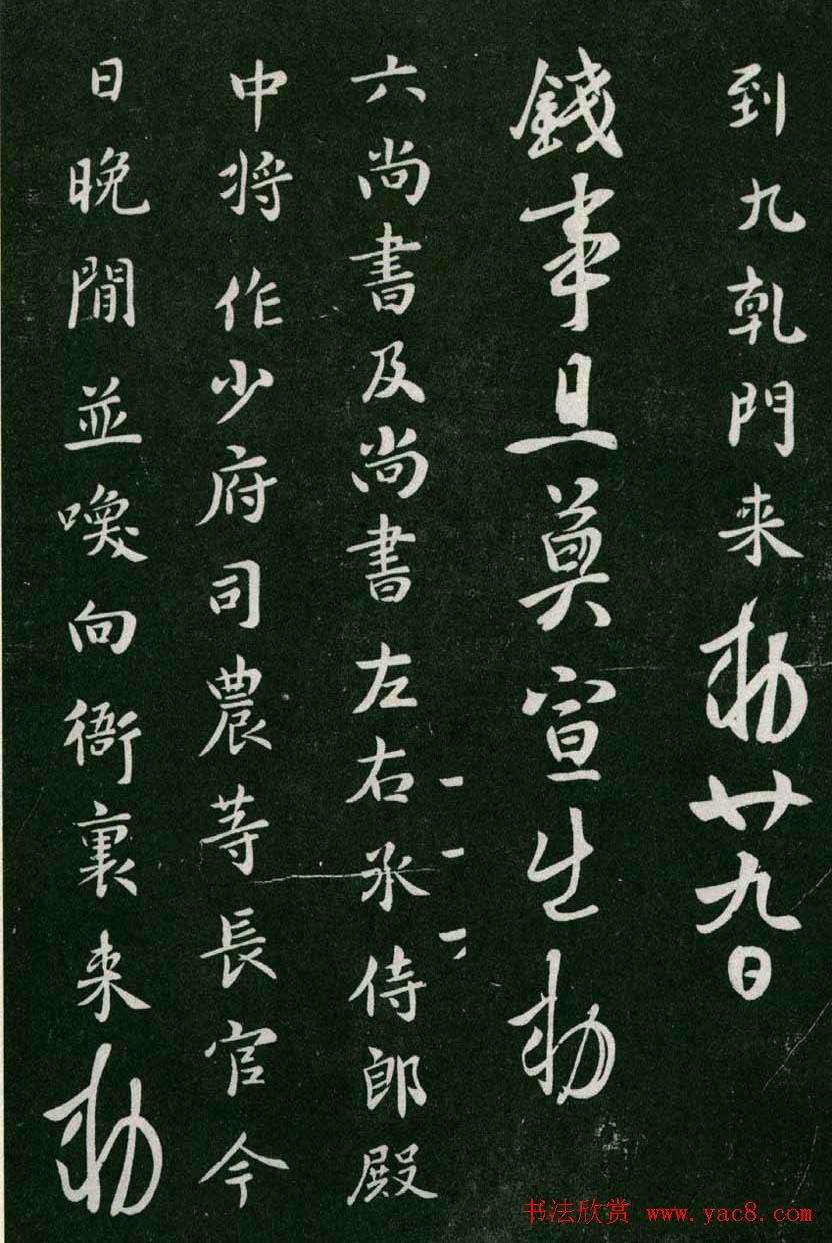 到九乹門来勅廿九日
錢事且莫宣生勅
六尚書及尚書左右丞侍郎殿
中将作少府司農等長官今
日晚間並喚向衙裏来勅
书法欣赏 www.yac8.com